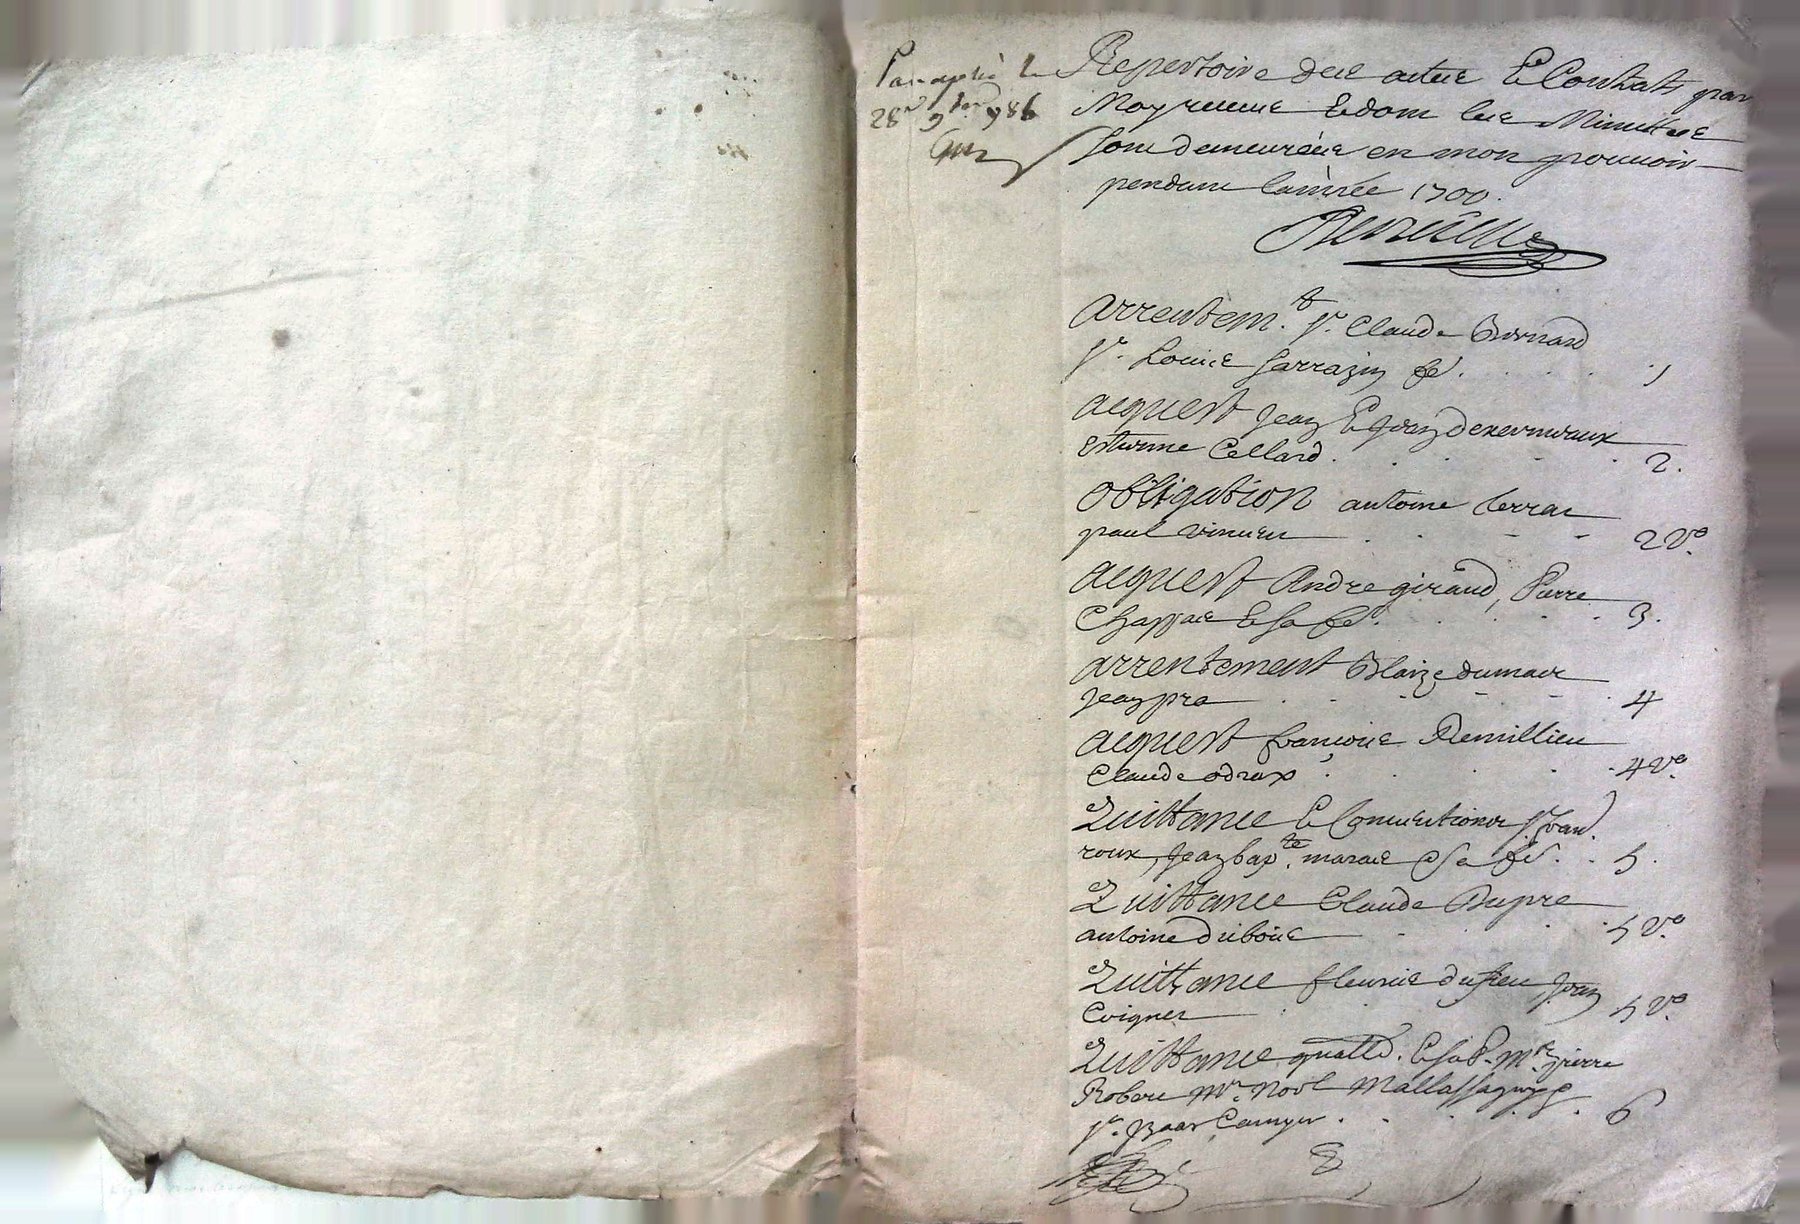 Paraphé le
28e 9bre 1986
Repertoire des actes & Contrats par
Moy receus & dont les Minuttes
sont demeurées en mon pouvoir
pendant l'année 1700.
arrentem.t sr. Claude Bernard
sr. Louis Sarrazin fe. 1
acquest Jean & Jean Dexermieaux
estienne Cellard. 2.
obligation antoine terras
paul vinuen 2 vo.
acquest Andre giraud, Pierre
Chappas & sa fe. 3.
arrentement Blaize dumas
Jean pra 4
acquest francois Remillieu
Claude odrax 4 vo.
Quittance & Conventions sr. Jean
roux, Jean bapte. maras & sa fe. 5.
Quittance Claude Dupre
antoine dubois 5 vo.
Quittance fleurie dufieu Jean
Coignet 5 vo.
Quittance quallé. & sa P. Mre. pierre
Robert Mre. Noel Mallassagny
sr. 6